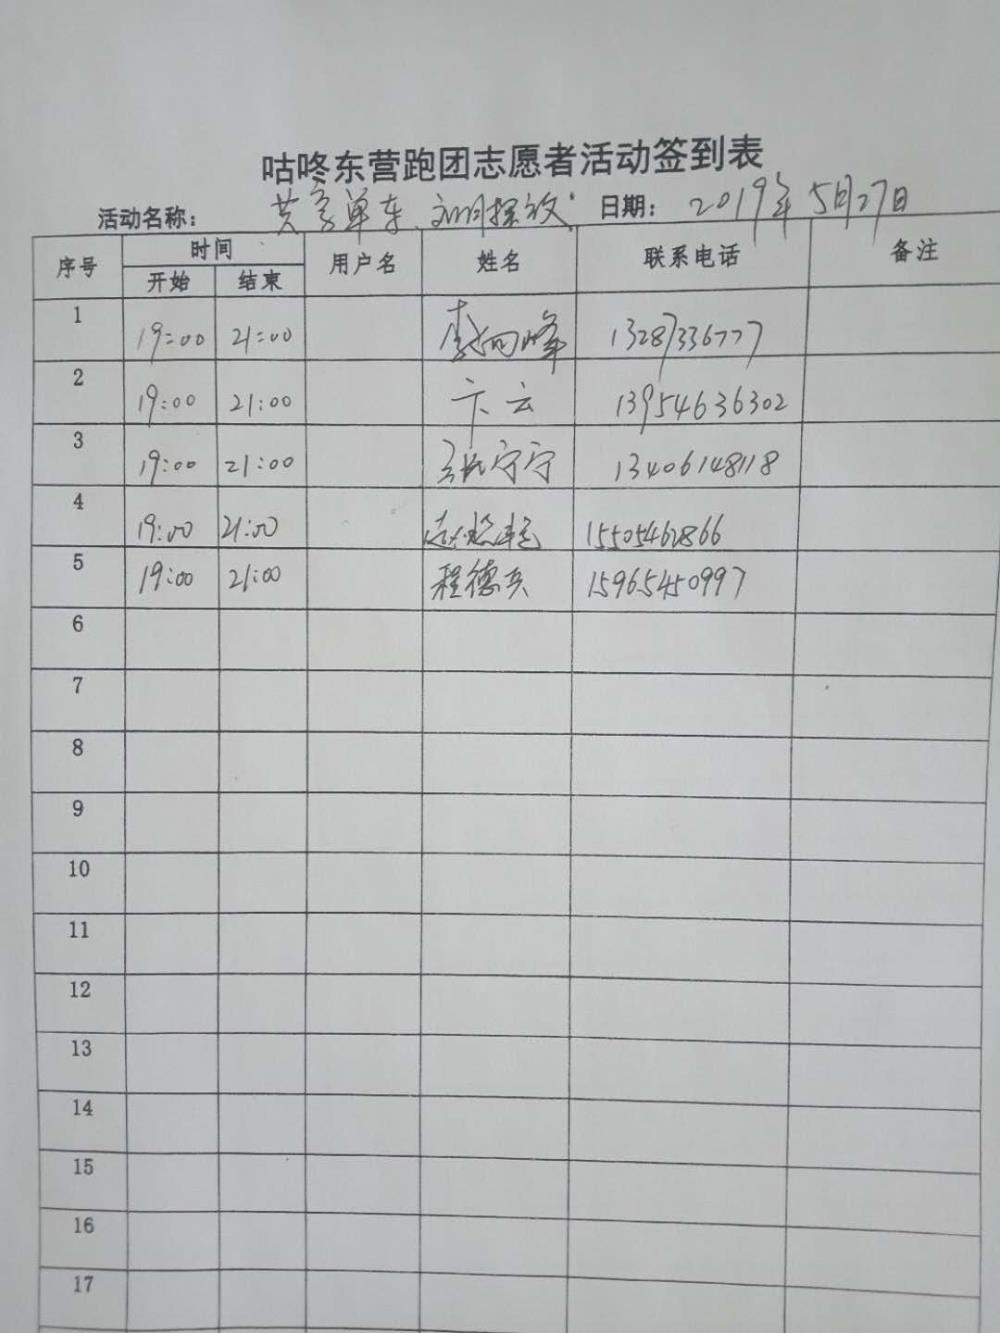 咕咚东营跑团志愿者活动签到表
活动名称: 共享单车、文明摆放 日期: 2019年5月27日
序号 时间 用户名 姓名 联系电话 备注
开始 结束
1 19:00 21:00 李向峰 13287336777
2 19:00 21:00 卞云 13954636302
3 19:00 21:00 宁宁 13406148118
4 19:00 21:00 赵 15505462866
5 19:00 21:00 程德兵 15965450997
6
7
8
9
10
11
12
13
14
15
16
17